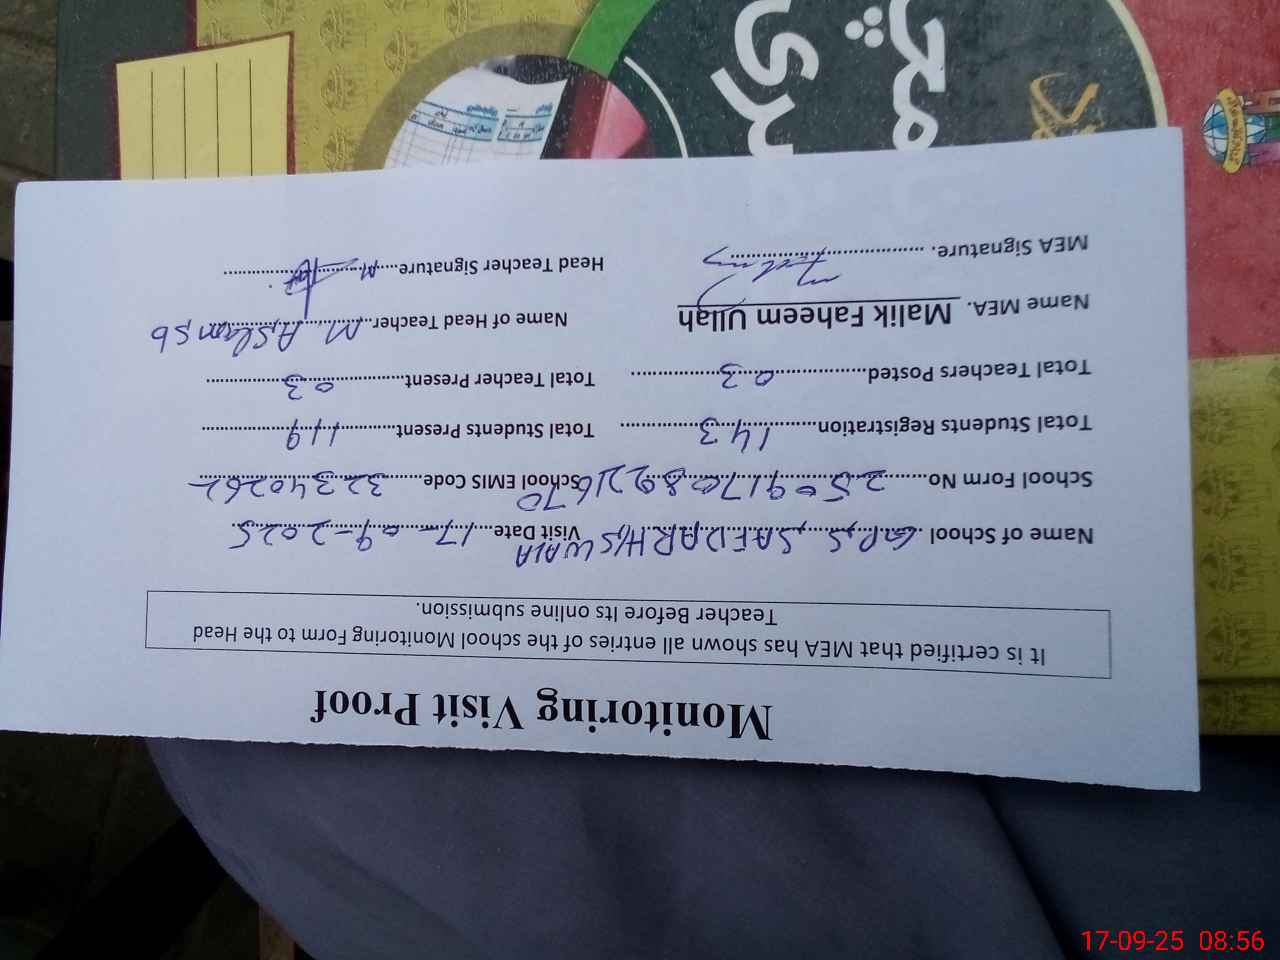 Monitoring Visit Proof
It is certified that MEA has shown all entries of the school Monitoring Form to the Head
Teacher Before Its online submission.
Name of School. G.P.S, SAEDARH/SWALA Visit Date 17-09-2025
School Form No. 25091708921670 School EMIS Code 32340262
Total Students Registration 143 Total Students Present 119
Total Teachers Posted 03 Total Teacher Present 03
Name MEA. Malik Faheem Ullah Name of Head Teacher M Aslam sb
MEA Signature. Head Teacher Signature
17-09-25 08:56